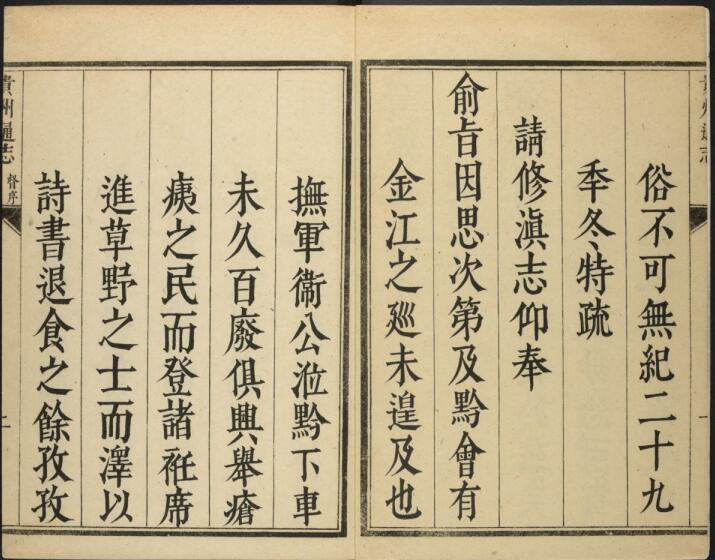 俗不可無紀二十九
秊冬特疏
請修滇志仰奉
俞旨因思次第及黔會有
金江之廵未遑及也
撫軍衞公涖黔下車
未久百廢俱興舉瘡
痍之民而登諸袵席
進草野之士而澤以
詩書退食之餘孜孜
貴州通志 督序 二